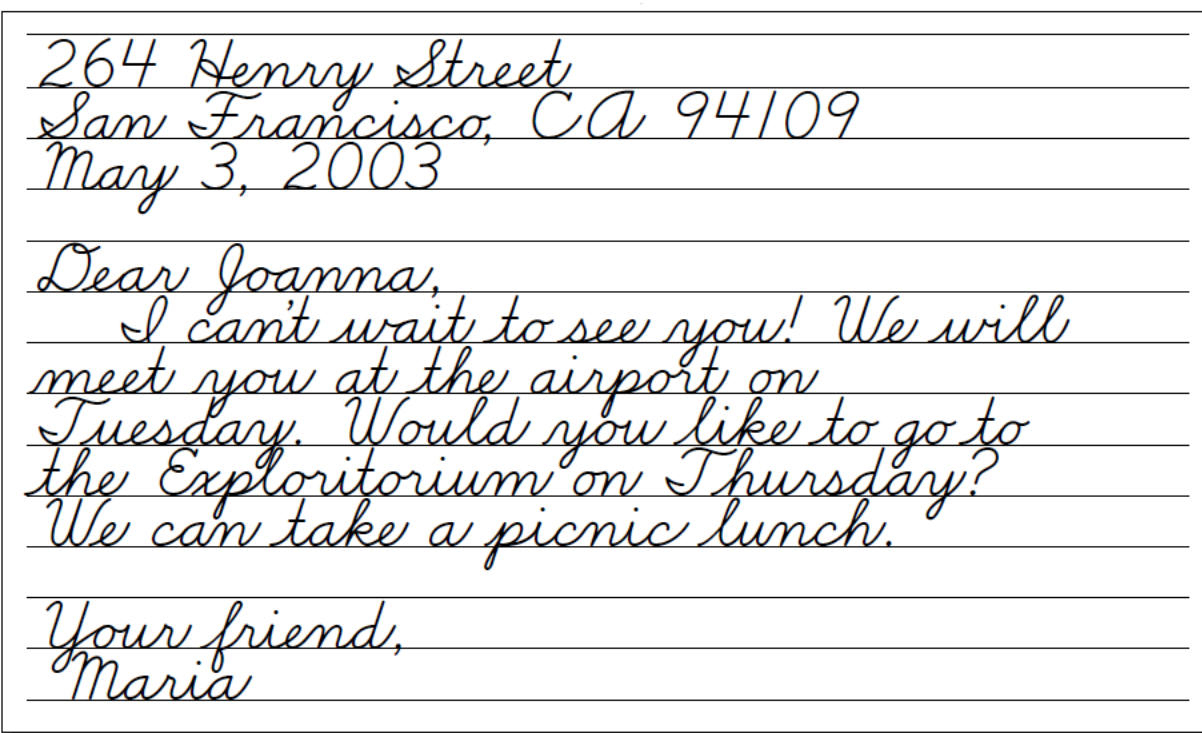 264 Henry Street
San Francisco, CA 94109
May 3, 2003
Dear Joanna,
I can't wait to see you! We will
meet you at the airport on
Tuesday. Would you like to go to
the Exploritorium on Thursday?
We can take a picnic lunch.
Your friend,
Maria